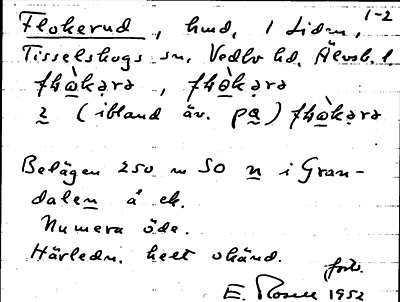 1-2
Flokerud, hmd, i Liden,
Tisselskogs sn, Vedbo hd, Älvsb. l.
flòkərə, flòkərə
2 (ibland äv. på) flòkərə
Belägen 250 m SO n i Gran-
dalen å ek.
Numera öde.
Härledn. helt okänd.
forts.
E. Rosell 1952